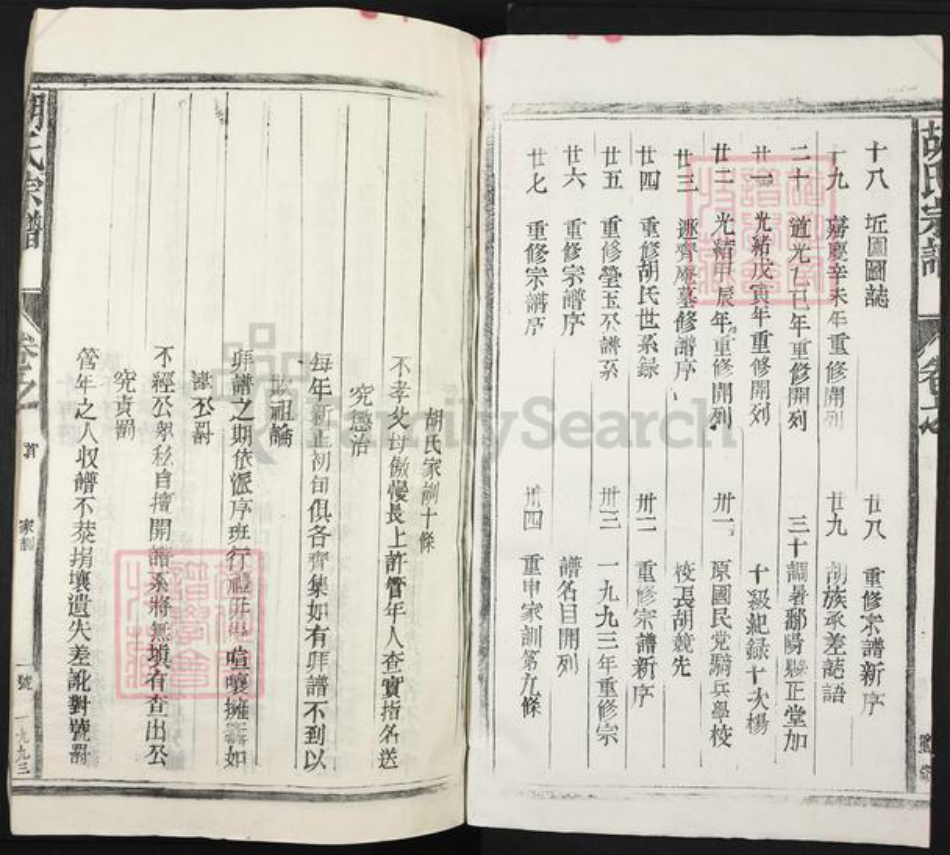 胡氏宗譜
十八 坵圖圖誌
十九 嘉慶辛未年重修開列
二十 道光九巳年重修開列
廿一 光緒戊寅年重修開列
廿二 光緒甲辰年重修開列
廿三 遯齊廢墓修譜序
廿四 重修胡氏世系録
廿五 重修瑩玉公譜系
廿六 重修宗譜序
廿七 重修宗譜序
廿八 重修宗譜新序
廿九 胡族承差誌語
三十 調署鄱陽縣正堂加
十級紀録十次楊
卅一 原國民党騎兵學校
校長胡競先
卅二 重修宗譜新序
卅三 一九九三年重修宗
譜名目開列
卅四 重申家訓第九條
胡氏家訓十條
不孝父母傲慢長上許管年人查實指名送
究懲治
每年新正初旬俱各齊集如有拜譜不到以
欺祖論
拜譜之期依派序班行禮 喧嚷擁擠如
違公罰
不經公眾私自擅開譜系將無填有查出公
究責罰
管年之人収譜不恭捐壞遺失差訛對號罰
胡氏宗譜
卷之
首
家訓
一號
一九九三
FamilySearch